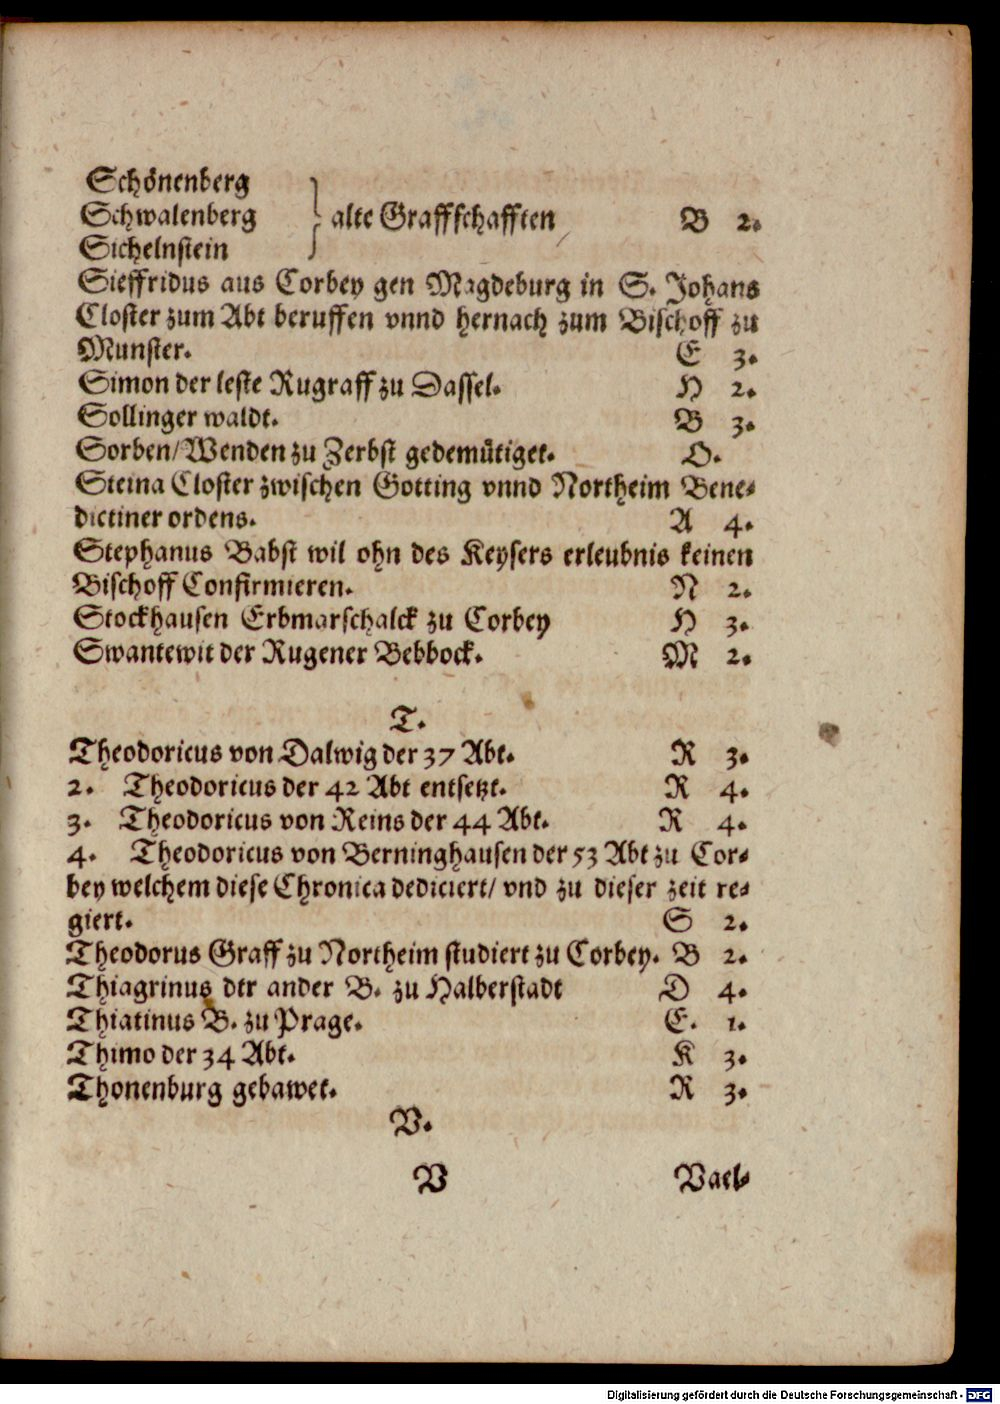 Schönenberg
Schwalenberg } alte Graffschafften B 2.
Sichelnstein
Sieffridus aus Corbey gen Magdeburg in S. Johans
Closter zum Abt beruffen vnnd hernach zum Bischoff zu
Munster. E 3.
Simon der leste Rugraff zu Dassel. H 2.
Sollinger waldt. B 3.
Sorben/Wenden zu Zerbst gedemütiget. D.
Steina Closter zwischen Gotting vnnd Northeim Bene-
dictiner ordens. A 4.
Stephanus Babst wil ohn des Keysers erleubnis keinen
Bischoff Confirmieren. N 2.
Stockhausen Erbmarschalck zu Corbey H 3.
Swantewit der Rugener Bebbock. M 2.
T.
Theodoricus von Dalwig der 37 Abt. R 3.
2. Theodoricus der 42 Abt entsetzt. R 4.
3. Theodoricus von Reins der 44 Abt. R 4.
4. Theodoricus von Berninghausen der 53 Abt zu Cor-
bey welchem diese Chronica dediciert/ vnd zu dieser zeit re-
giert. S 2.
Theodorus Graff zu Northeim studiert zu Corbey. B 2.
Thiagrinus dtr ander B. zu Halberstadt D 4.
Thiatinus B. zu Prage. E. 1.
Thimo der 34 Abt. K 3.
Thonenburg gebawet. R 3.
V.
V Vael-
Digitalisierung gefördert durch die Deutsche Forschungsgemeinschaft - DFG